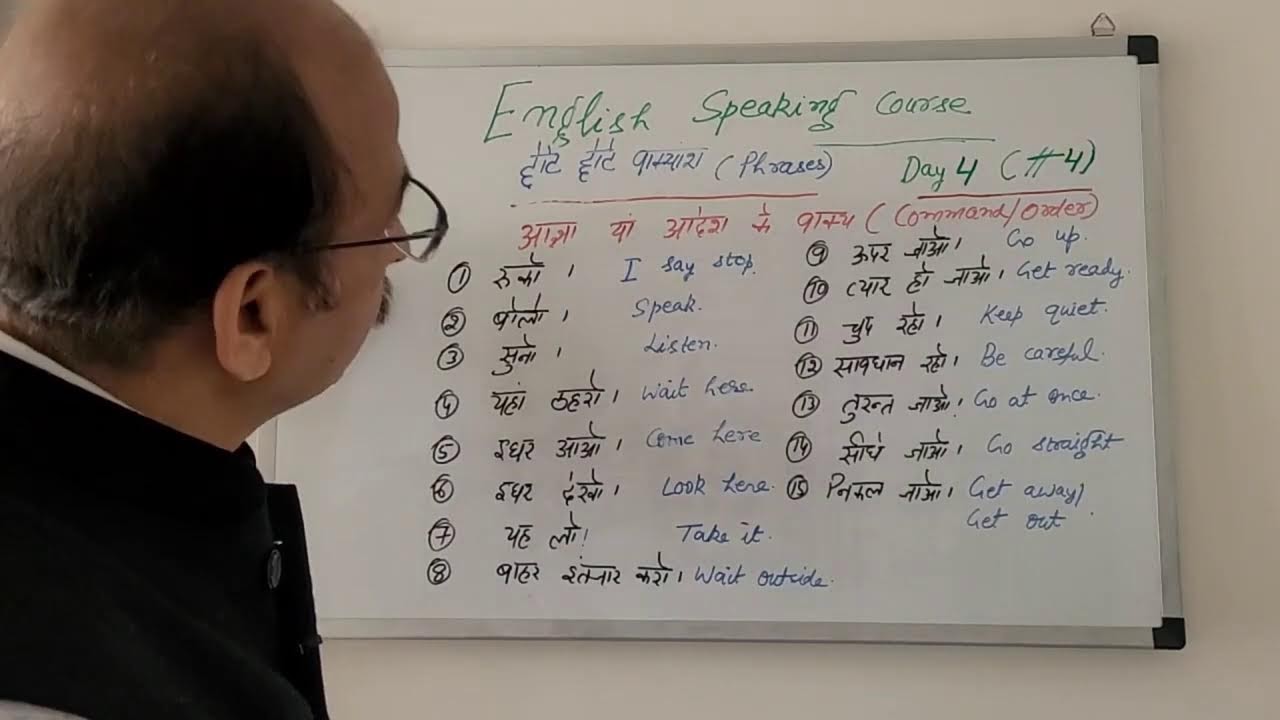 English Speaking Course
छोटे छोटे वाक्यांश (Phrases) Day 4 (#4)
आज्ञा यां आदेश के वाक्य (Command/Order)
① रुको । I say stop.
② बोलो । Speak.
③ सुनो । Listen.
④ यहां ठहरो । Wait here.
⑤ इधर आओ । Come here
⑥ इधर देखो । Look here.
⑦ यह लो! Take it.
⑧ बाहर इंतजार करो । Wait outside.
⑨ ऊपर जाओ । Go up.
⑩ त्यार हो जाओ । Get ready.
⑪ चुप रहो । Keep quiet.
⑫ सावधान रहो । Be careful.
⑬ तुरन्त जाओ ! Go at once.
⑭ सीधे जाओ । Go straight
⑮ निकल जाओ । Get away/
Get out